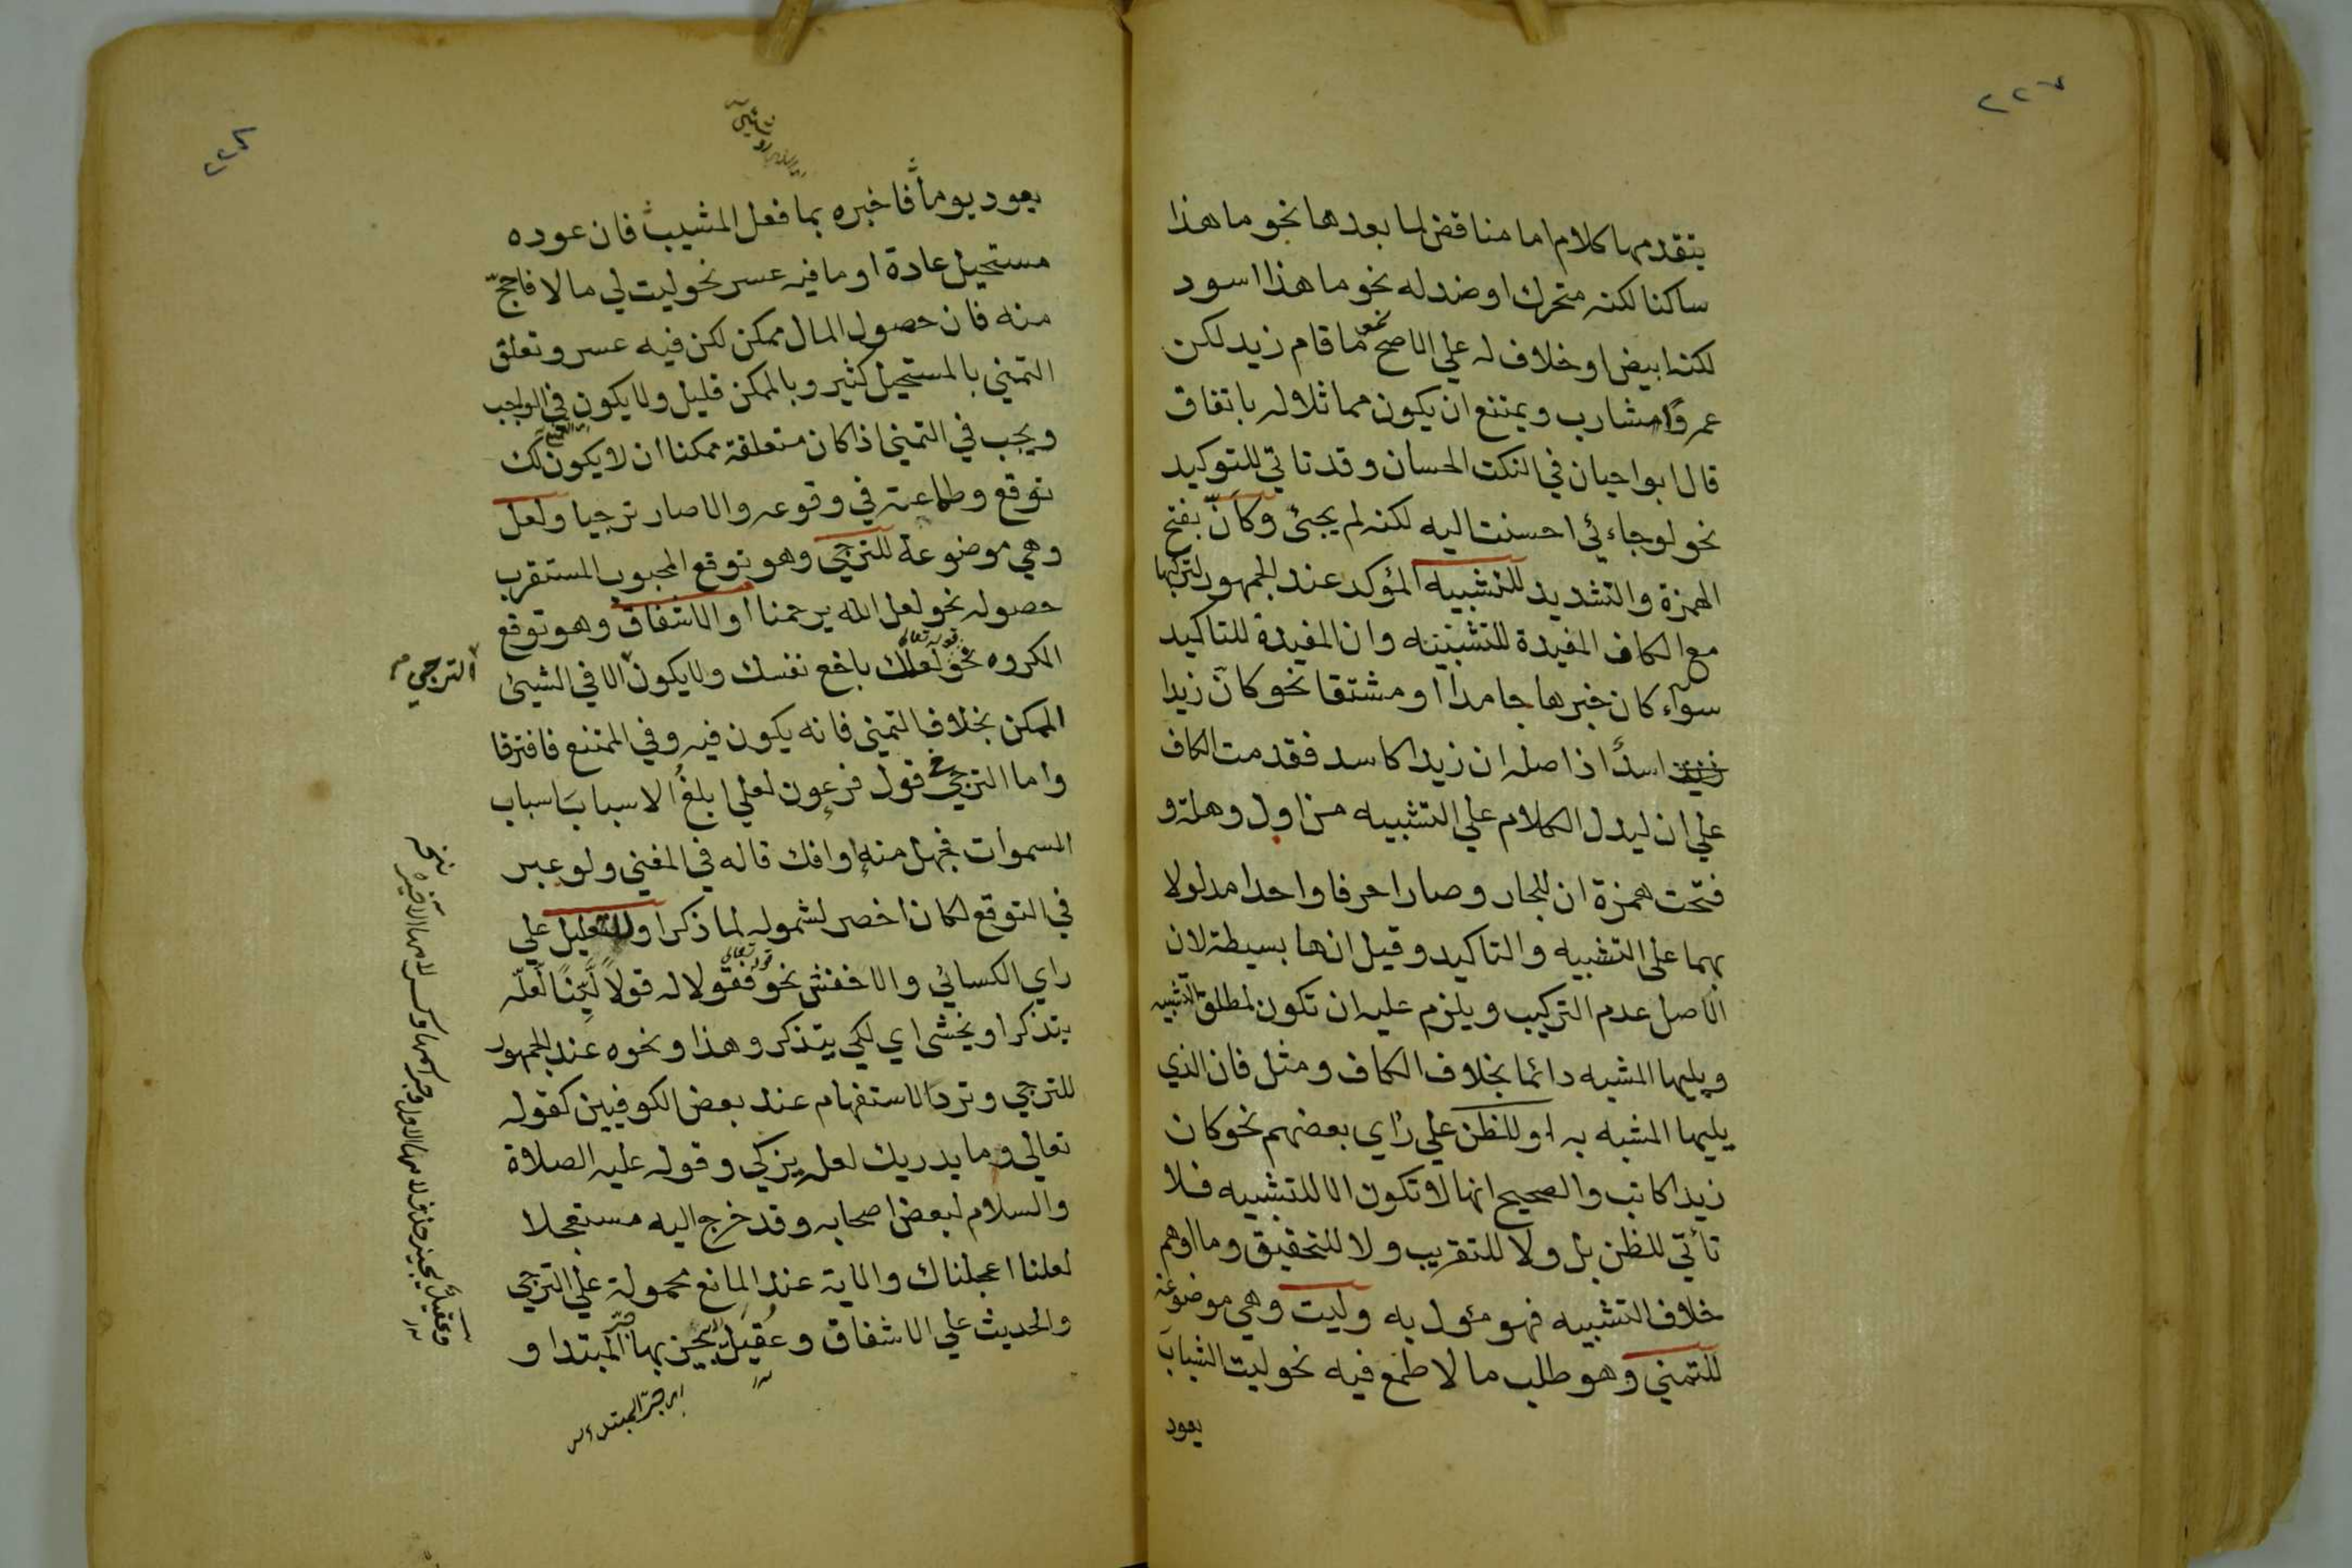 ٢٢٧
يتقدمها كلام اما مناقض لما بعدها نحو ما هذا
ساكنا لكنه متحرك او ضد له نحو ما هذا اسود
لكنه ابيض او خلاف له علي الاصح نحو ما قام زيد لكن
عمرًا شارب ويمتنع ان يكون مماثلا له باتفاق
قال ابوا حيان في النكت الحسان وقد تاتي للتوكيد
نحو لو جاءني احسنت اليه لكنه لم يجئ وكأنّ بفتح
الهمزة والتشديد للتشبيه المؤكد عند الجمهور لتركبها
مع الكاف المفيدة للتشبيه وان المفيدة للتاكيد
سوآء كان خبرها جامدا او مشتقا نحو كانّ زيدا
اسدٌ اذ اصله ان زيدا كاسد فقدمت الكاف
علي ان ليدل الكلام علي التشبيه من اول وهلة و
فتحت همزة ان للجار وصارا حرفا واحدا مدلولا
بهما على التشبيه والتاكيد وقيل انها بسيطة لان
الاصل عدم التركيب ويلزم عليه ان تكون لمطلق التشبيه
ويليها المشبه دائما بخلاف الكاف ومثل فان الذي
يليها المشبه به او للظن علي رأي بعضهم نحو كان
زيدا كاتب والصحيح انها لا تكون الا للتشبيه فلا
تأتي للظن بل ولا للتقريب ولا للتحقيق وما اوهم
خلاف التشبيه فهو مئول به وليت وهي موضوعة
للتمني وهو طلب ما لا طمع فيه نحو ليت الشباب
يعود
٢٢٨
يعود يوما فاخبره بما فعل المشيب فان عوده
مستحيل عادة او ما فيه عسر نحو ليت لي مالا فاحجّ
منه فان حصول المال ممكن لكن فيه عسر وتعلق
التمني بالمستحيل كثير وبالممكن قليل ولا يكون في الواجب
ويجب في التمني اذا كان متعلقة ممكنا ان لا يكون لك
توقع وطماعية في وقوعه والا صار ترجيا ولعل
وهي موضوعة للترجي وهو توقع المحبوب المستقرب
حصوله نحو لعل الله يرحمنا او الاشفاق وهو توقع
المكروه نحو قوله تعالى لعلك باخع نفسك ولا يكون الا في الشيئ
الترجي
الممكن بخلاف التمني فانه يكون فيه وفي الممتنع فافترقا
واما الترجي في قول فرعون لعلي ابلغُ الاسباب اسباب
السموات فجهل منه او افك قاله في المغني ولو عبر
في التوقع لكان اخصر لشموله لما ذكر او للتعليل علي
راي الكسائي والاخفش نحو قوله تعالى فقولا له قولاً ليّنًا لعلّه
يتذكر او يخشى اي لكي يتذكر وهذا ونحوه عند الجمهور
للترجي وترد الاستفهام عند بعض الكوفيين كقوله
تعالي وما يدريك لعله يزكي وقوله عليه الصلاة
والسلام لبعض اصحابه وقد خرج اليه مستعجلا
لعلنا اعجلناك والاية عند المانع محمولة علي الترجي
والحديث علي الاشفاق وعُقيل يجيز بها جر المبتدا و